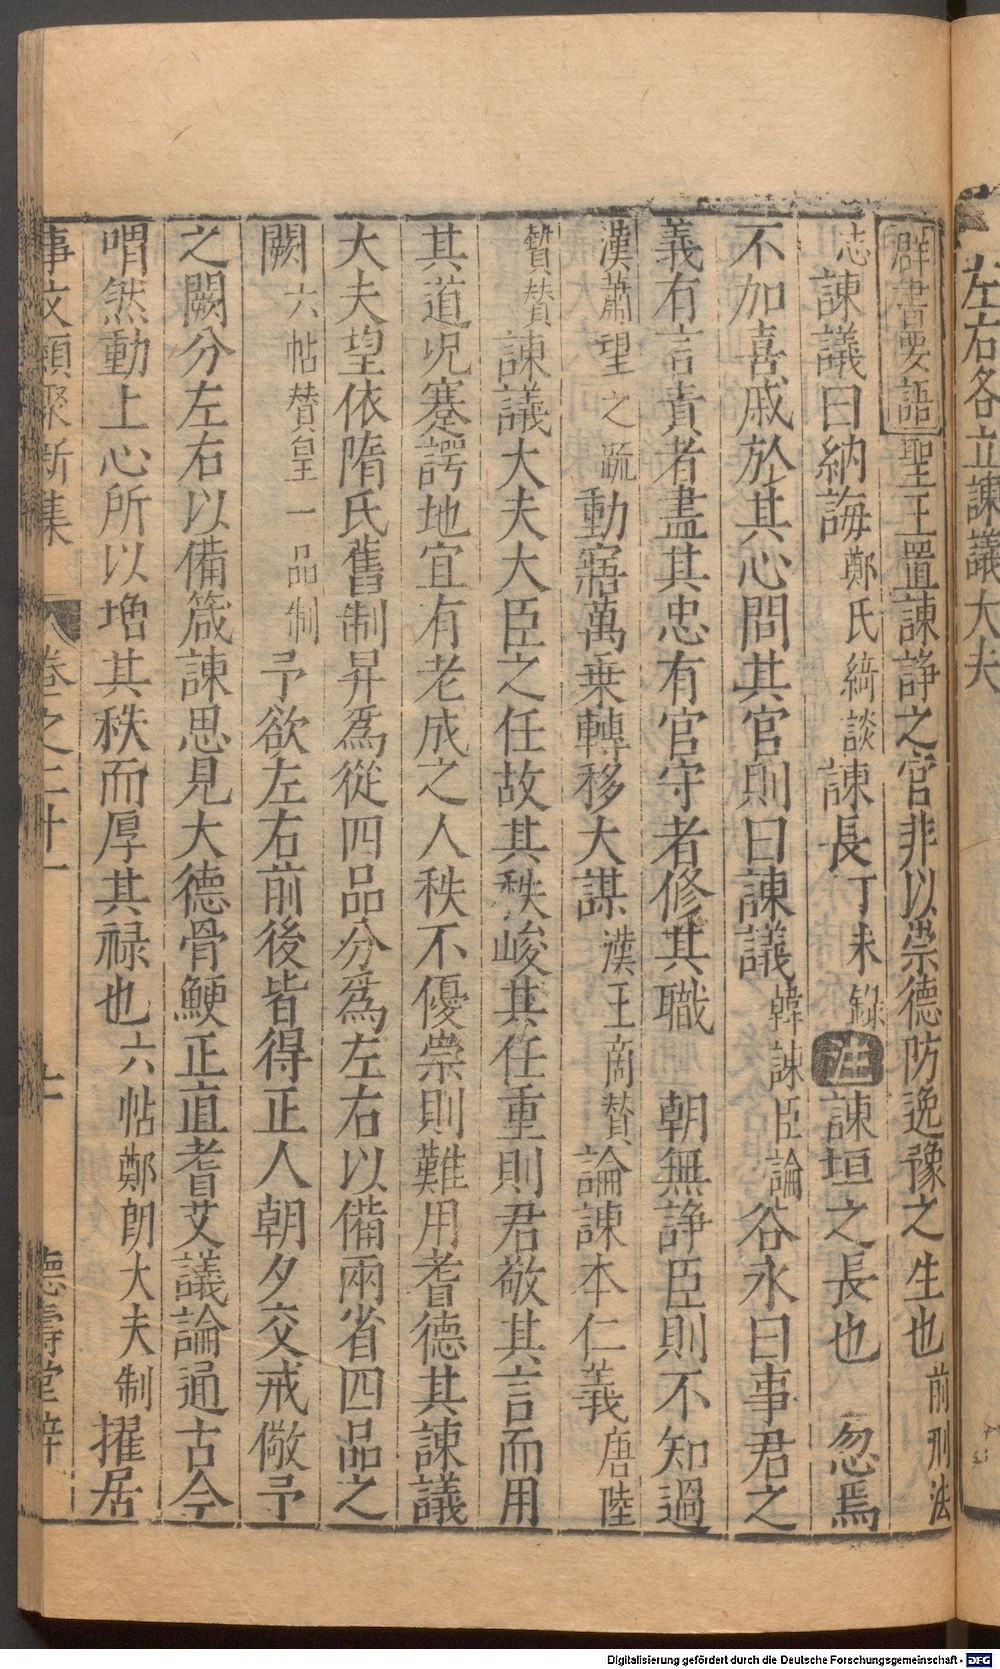 左右各立諫議大夫
群書要語聖王置諫諍之官非以崇德防逸豫之生也前刑法
志諫議曰納誨鄭氏綺談諫長丁未錄注諫垣之長也忽焉
不加喜戚於其心問其官則曰諫議韓諫臣論谷永曰事君之
義有言責者盡其忠有官守者修其職朝無諍臣則不知過
漢蕭望之疏動寤萬乗轉移大謀漢王商賛論諫本仁義唐陸
贄賛諫議大夫大臣之任故其秩峻其任重則君敬其言而用
其道况蹇諤地宜有老成之人秩不優崇則難用耆德其諫議
大夫望依隋氏舊制昇爲從四品分爲左右以備兩省四品之
闕六帖賛皇一品制予欲左右前後皆得正人朝夕交戒儆予
之闕分左右以備箴諫思見大德骨鯁正直耆艾議論通古今
喟然動上心所以増其秩而厚其禄也六帖鄭朗大夫制擢居
事文類聚新集 卷之二十一 七 德壽堂梓
Digitalisierung gefördert durch die Deutsche Forschungsgemeinschaft - DFG